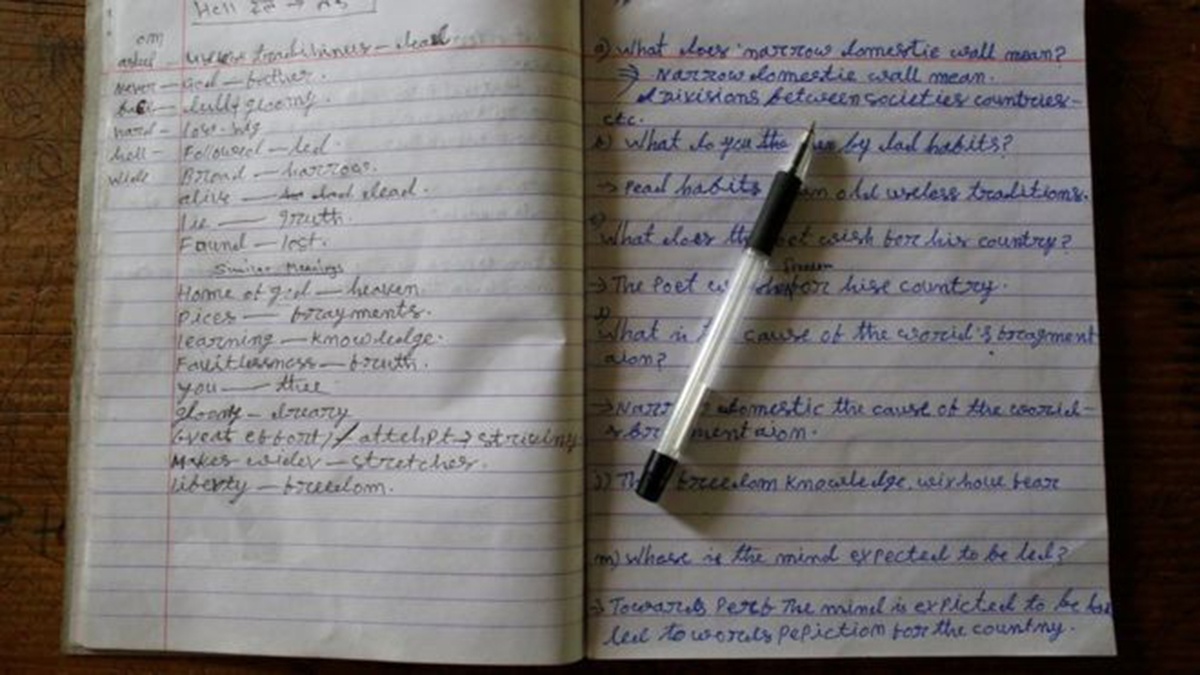 Hell
useless traditions - dead
never - God - father.
dull gloomy.
hard - low - big
hell - Followed - led.
wide Broad - narrow.
alive - dead.
Lie - truth.
Found - lost.
Similar Meanings
Home of god - heaven
Pices - fragments.
learning - knowledge.
Faultlessness - truth.
you - thee
gloomy - dreary
Great effort / attempt → striving
Makes wider - stretches.
liberty - freedom.
a) What does narrow domestic wall mean?
⇒ Narrow domestic wall mean.
divisions between societies countries -
etc.
b) What do you the by dad habits?
→ Dead habits old useless traditions.
What does the wish for his country?
freedom
→ The Poet for hise country.
What is cause of the world's fragment
aion?
→ domestic the cause of the world -
mentaion.
freedom knowledge, without fear
m) Where is the mind expected to be led?
→ Towards Perf The mind is expicted to be
led towords pepiction for the country.